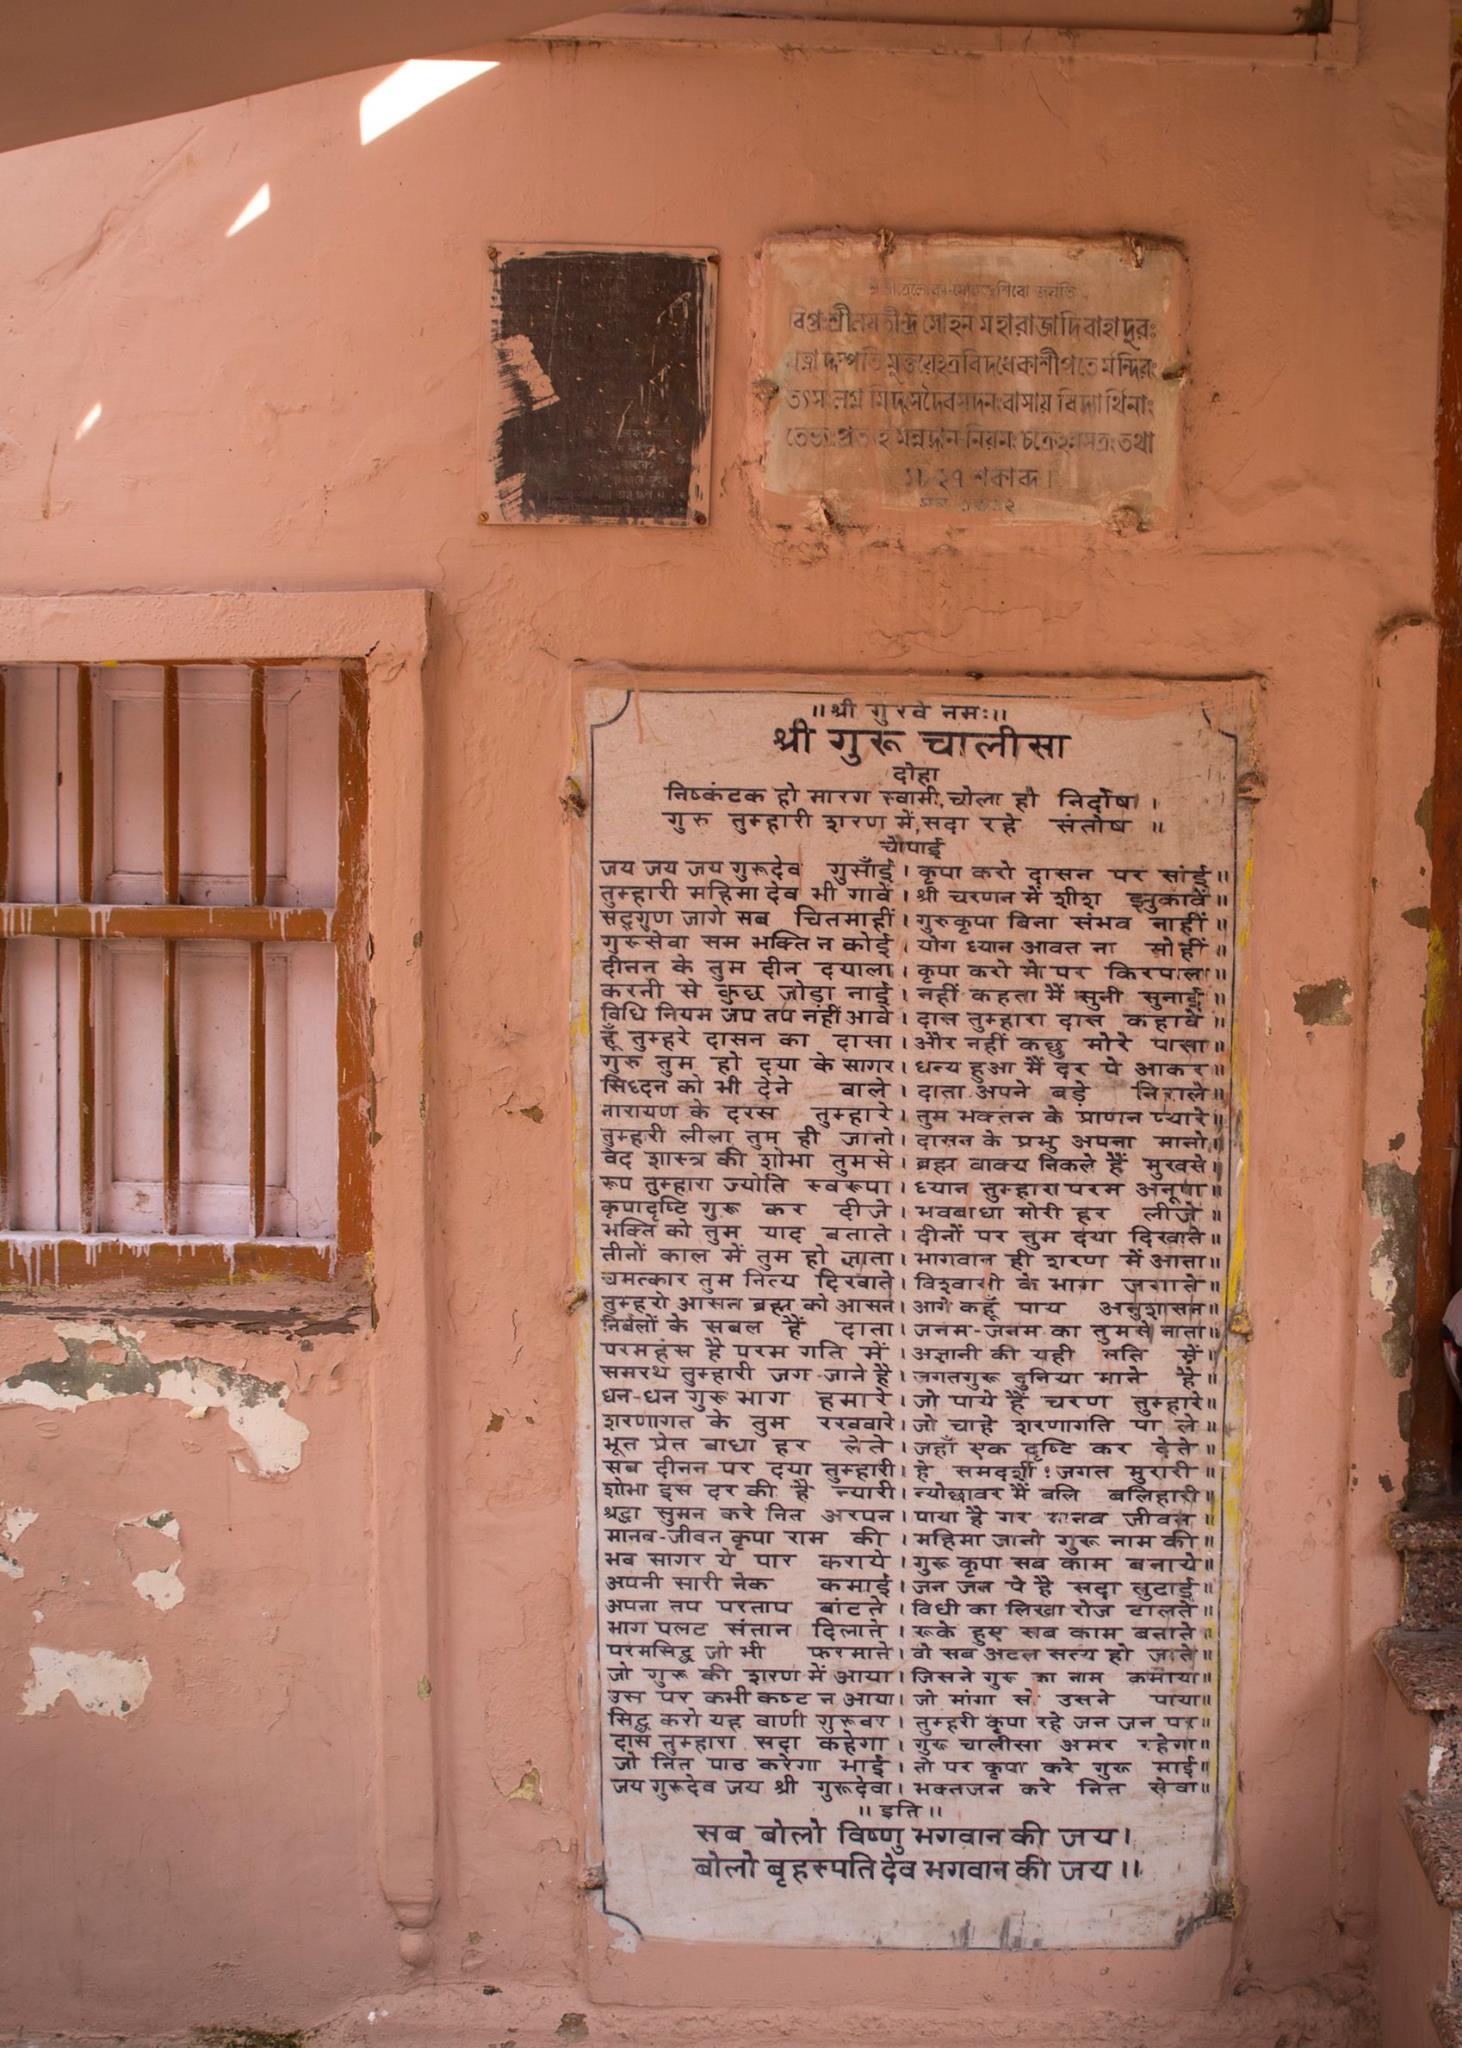 विप्र श्री
मोहन महाराजादि बाहादुरः
काशीपते र्मन्दिरः
विद्यार्थिनाः
तथा
शकाब्द।
॥श्री गुरवे नमः॥
श्री गुरू चालीसा
दोहा
निष्कंटक हो मारग स्वामी, चोला हो निर्दोष।
गुरु तुम्हारी शरण में, सदा रहे संतोष ॥
चौपाई
जय जय जय गुरूदेव गुसाँई। कृपा करो दासन पर सांई॥
तुम्हारी महिमा देव भी गावें। श्री चरणन में शीश झुकावें॥
सद्गुण जागे सब चितमाहीं। गुरुकृपा बिना संभव नाहीं॥
गुरूसेवा सम भक्ति न कोई। योग ध्यान आवत ना मोहीं॥
दीनन के तुम दीन दयाला। कृपा करो मो पर किरपाला॥
करनी से कुछ जोड़ा नाई। नहीं कहता मैं सुनी सुनाई॥
विधि नियम जप तप नहीं आवे। दास तुम्हारा दास कहावें॥
हूँ तुम्हरे दासन का दासा। और नहीं कछु मोरे पासा॥
गुरु तुम हो दया के सागर। धन्य हुआ मैं दर पे आकर॥
सिध्दन को भी देने वाले। दाता अपने बड़े निराले॥
नारायण के दरस तुम्हारे। तुम भक्तन के प्राणन प्यारे॥
तुम्हरी लीला तुम ही जानो। दासन के प्रभु अपना मानो॥
वेद शास्त्र की शोभा तुमसे। ब्रह्म वाक्य निकले हैं मुखसे॥
रूप तुम्हारा ज्योति स्वरूपा। ध्यान तुम्हारा परम अनूपा॥
कृपादृष्टि गुरू कर दीजे। भवबाधा मोरी हर लीजे॥
भक्ति को तुम याद बताते। दीनों पर तुम दया दिखाते॥
तीनों काल में तुम हो ज्ञाता। भागवान ही शरण में आता॥
चमत्कार तुम नित्य दिखाते। विश्वासी के भाग जगाते॥
तुम्हरो आसन ब्रह्म को आसन। आगे कहूँ पाय अनुशासन॥
निर्बलों के सबल हैं दाता। जनम-जनम का तुमसे नाता॥
परमहंस है परम गति में। अज्ञानी की यही मति में॥
समरथ तुम्हारी जग जाने है। जगतगुरू दुनिया माने है॥
धन-धन गुरू भाग हमारे। जो पाये हैं चरण तुम्हारे॥
शरणागत के तुम रखवारे। जो चाहे शरणागति पा ले॥
भूत प्रेत बाधा हर लेते। जहाँ एक दृष्टि कर देते॥
सब दीनन पर दया तुम्हारी। हे समदर्शी! जगत मुरारी॥
शोभा इस दर की है न्यारी। न्योछावर मैं बलि बलिहारी॥
श्रद्धा सुमन करे नित अरपन। पाया है गर मानव जीवन॥
मानव-जीवन कृपा राम की। महिमा जानो गुरू नाम की॥
भव सागर ये पार कराये। गुरू कृपा सब काम बनाये॥
अपनी सारी नेक कमाई। जन जन पे है सदा लुटाई॥
अपना तप परताप बांटते। विधी का लिखा रोज टालते॥
भाग पलट संतान दिलाते। रूके हुए सब काम बनाते॥
परमसिद्ध जो भी फरमाते। वो सब अटल सत्य हो जाते॥
जो गुरू की शरण में आया। जिसने गुरू का नाम कमाया॥
उस पर कभी कष्ट न आया। जो मांगा सो उसने पाया॥
सिद्ध करो यह वाणी गुरूवर। तुम्हरी कृपा रहे जन जन पर॥
दास तुम्हारा सदा कहेगा। गुरू चालीसा अमर रहेगा॥
जो नित पाठ करेगा भाई। तो पर कृपा करे गुरू माई॥
जय गुरूदेव जय श्री गुरूदेवा। भक्तजन करे नित सेवा॥
॥ इति ॥
सब बोलो विष्णु भगवान की जय।
बोलो बृहस्पति देव भगवान की जय॥